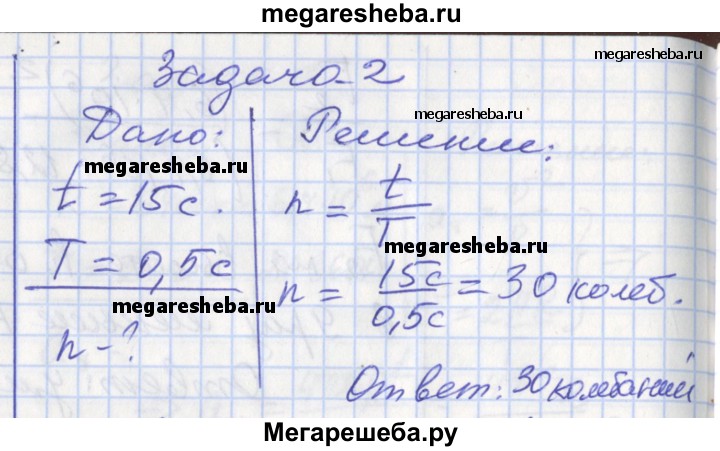 megaresheba.ru
megaresheba.ru
Задача 2
megaresheba.ru
Дано:
megaresheba.ru
t = 15 с.
T = 0,5 с
megaresheba.ru
n - ?
Решение:
n = t/T
megaresheba.ru
n = 15с/0,5с = 30 колеб.
megaresheba.ru
Ответ: 30 колебаний
Мегарешеба.ру